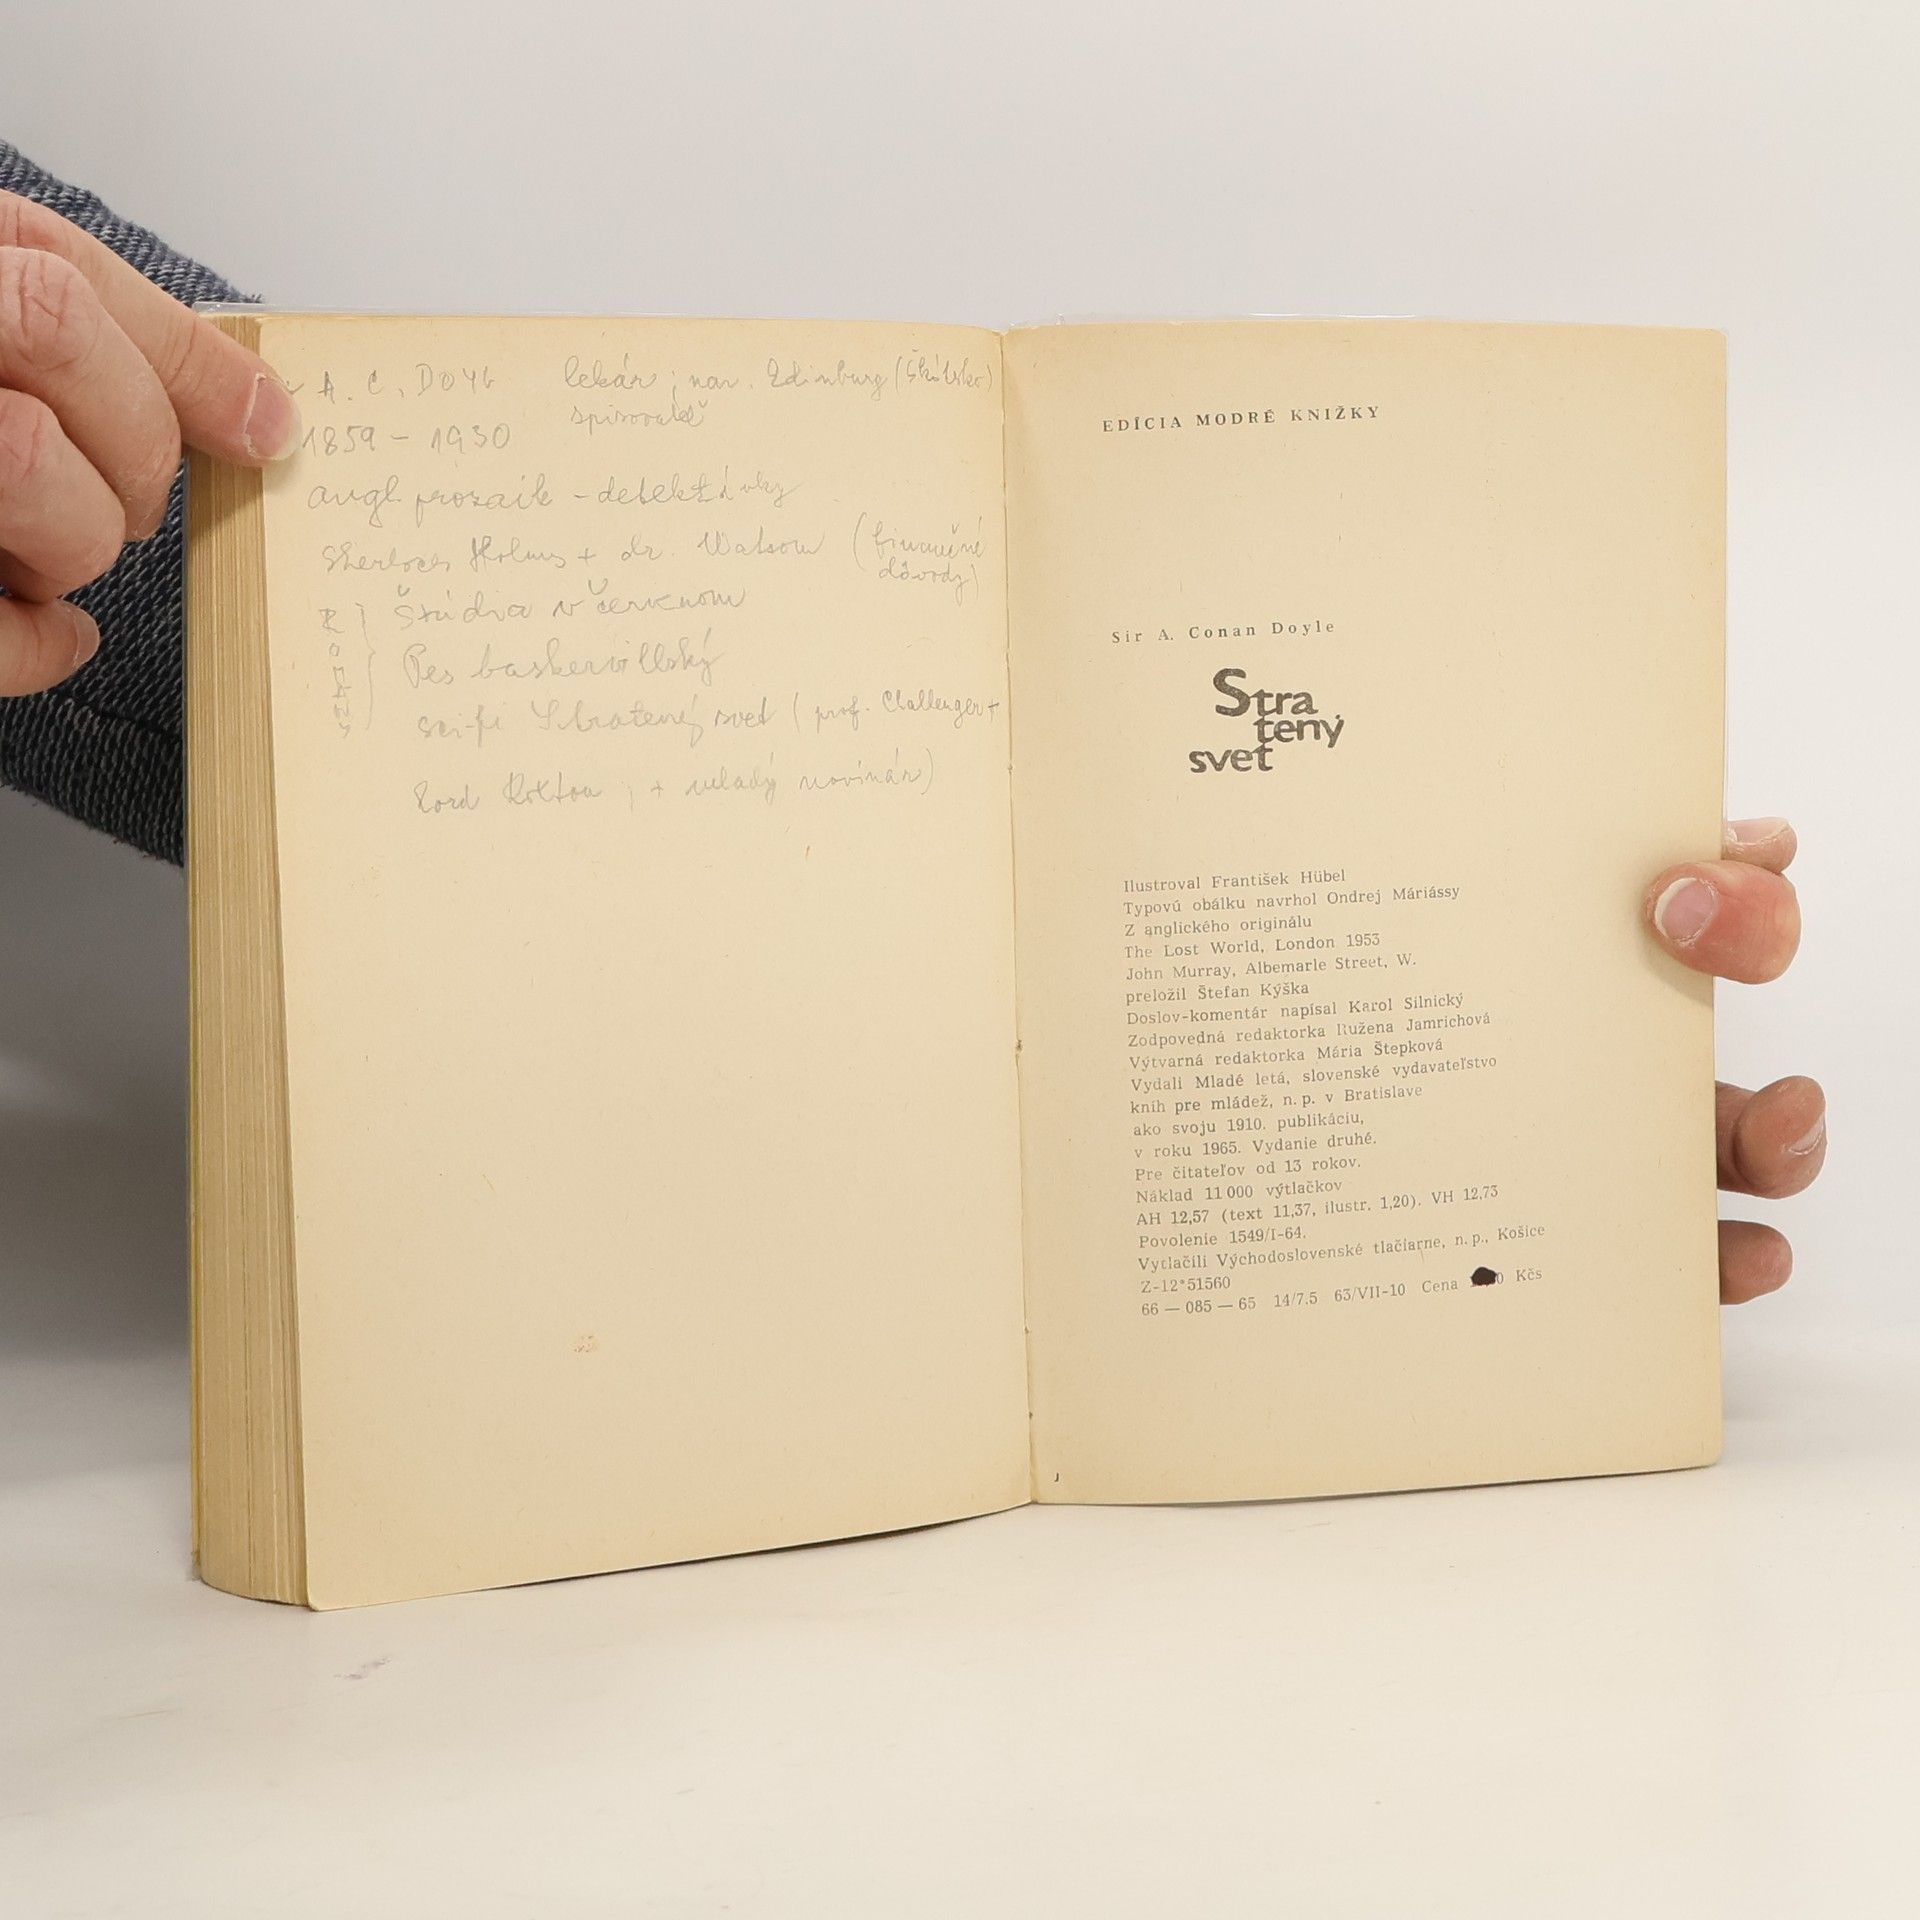 A. C. DOYL lekár; nar. Edinburg (Škótsko)
spisovateľ
1859 - 1930
angl prozaik - detektívky
Sherloces Holmes + dr. Watson (finančné
dôvody)
Štúdia v červenom
Pes baskervillský
sci-fi Stratený svet (prof. Challenger +
Lord Roxton ; + mladý novinár)
EDÍCIA MODRÉ KNIŽKY
Sir A. Conan Doyle
Stra
tený
svet
Ilustroval František Hübel
Typovú obálku navrhol Ondrej Máriássy
Z anglického originálu
The Lost World, London 1953
John Murray, Albemarle Street, W.
preložil Štefan Kýška
Doslov-komentár napísal Karol Silnický
Zodpovedná redaktorka Ružena Jamrichová
Výtvarná redaktorka Mária Štepková
Vydali Mladé letá, slovenské vydavateľstvo
kníh pre mládež, n. p. v Bratislave
ako svoju 1910. publikáciu,
v roku 1965. Vydanie druhé.
Pre čitateľov od 13 rokov.
Náklad 11 000 výtlačkov
AH 12,57 (text 11,37, ilustr. 1,20). VH 12,73
Povolenie 1549/I-64.
Vytlačili Východoslovenské tlačiarne, n. p., Košice
Z-12*51560
66 — 085 — 65 14/7.5 63/VII-10 Cena Kčs